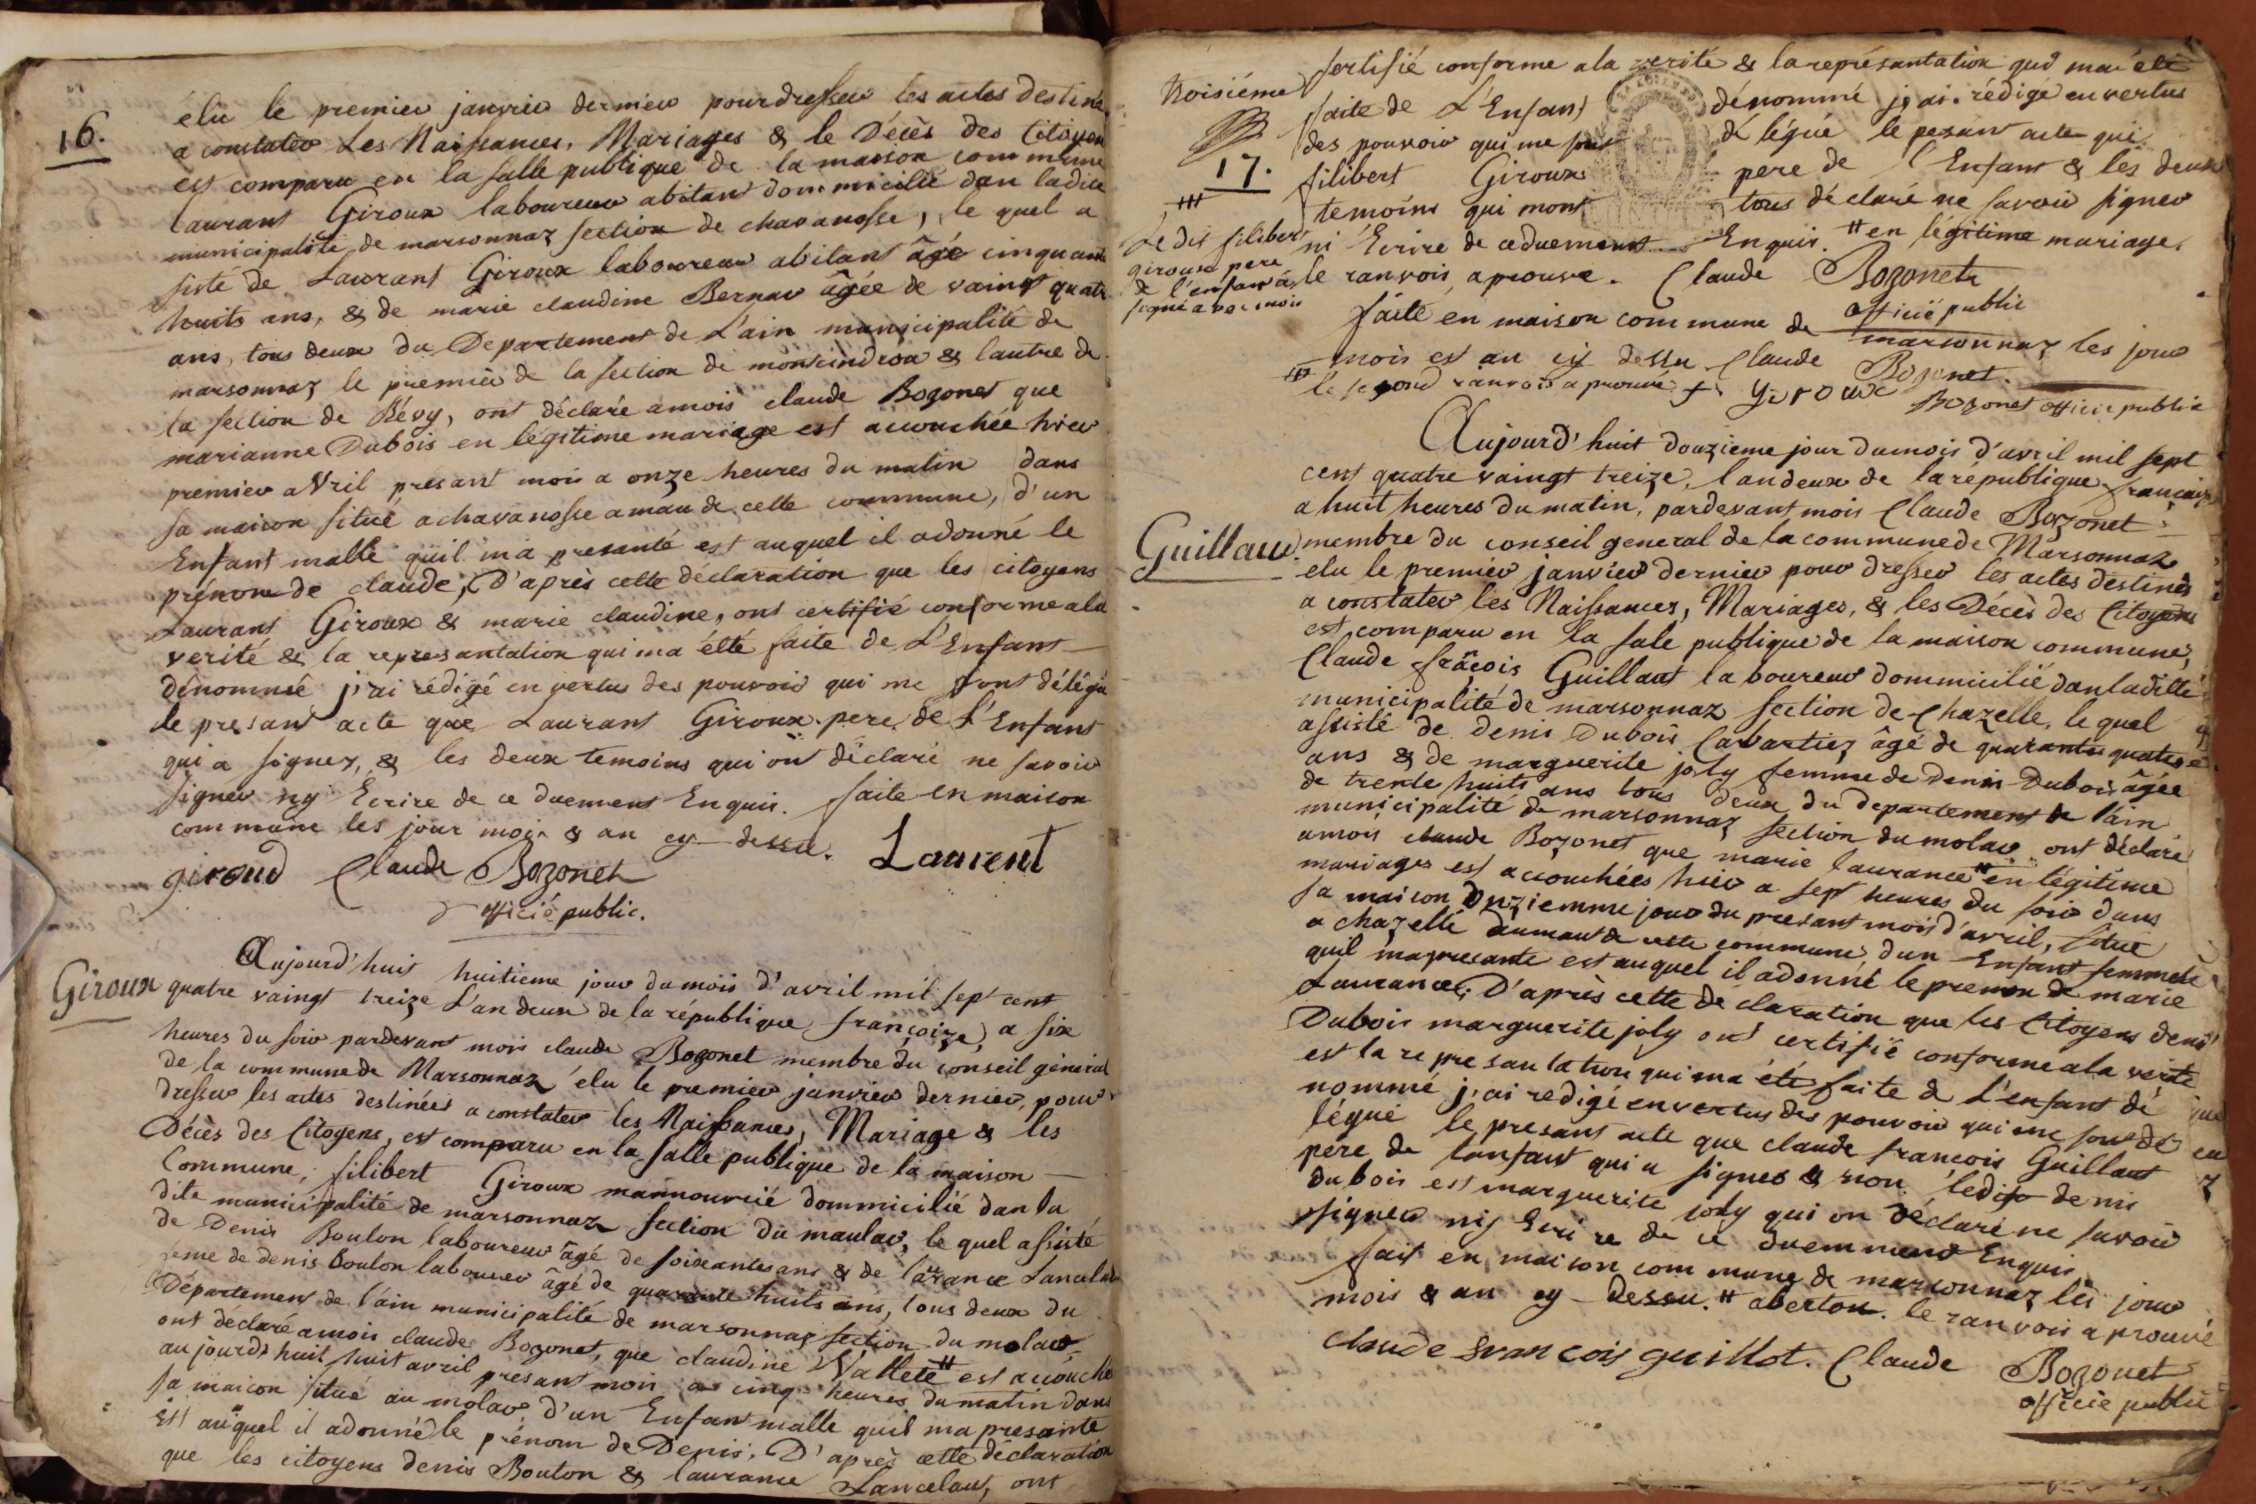 16.
élu le premier janvrier dernier pour dresser les actes destiné
a constater Les Naissances, Mariages & le Décès des Citoyen
est comparu en la salle publique de la maison commune
laurant Giroux laboureur abitant dommicilié dan ladite
municipalité de marsonnaz section de chavanosse, le quel a
sisté de Laurant Giroux laboureur abitant âgé cinquant
huits ans, & de marie claudine Bernar âgée de vaingt quatr
ans, tous deux du Departement de L'ain municipalité de
marsonnaz le premier de la section de montcindroux & lautre de
la section de Bévy, ont déclaré amois claude Bozonet que
marianne Dubois en légitime mariage est acouchée hier
premier aVril présant mois a onze heures du matin dans
sa maison situé achavanosse amau de cette commune, d'un
Enfant malle quil m'a presanté est auquel il adonné le
prénom de claude, D'après cette déclaration que les citoyens
Laurant Giroux & marie claudine, ont certifié conforme ala
verité & la représantation qui ma été faite de L'Enfant
dénommé j'ai rédigé en vertus des pouvoir qui me sont délégu
le presant acte que Laurant Giroux pere de l'Enfant
qui a signer, & les deux temoins qui on déclaré ne savoir
signer ny Ecrire de ce duement Enquis. faite en maison
commune les jour mois & an cy dessu. Laurent
giroud Claude Bozonet
officié public.
Giroux
Aujourd'huit huitieme jour du mois d'avril mil sept cent
quatre vaingt treize L'an deux de la république françoize, a six
heures du soir pardevant mois claude Bozonet membre du conseil général
de la commune de Marsonnaz élu le premier janvier dernier, pour
dresser les actes destinées a constater les Naissances, Mariage & les
Décès des Citoyens, est comparu en la salle publique de la maison
Commune, filibert Giroux mannouvrié dommicilié dan la
dite municipalité de marsonnaz section du maular, le quel assisté
de Denis Bouton laboureur âgé de soixantes ans & de laurance Lancelau
feme de denis Bouton laboureur âgé de quarante huits ans, tous deux du
Département de l'ain municipalité de marsonnaz section du molar
ont déclaré amois claude Bozonet, que claudine Vallete # est acouché
aujourd'huit huit avril présant mois a cinq heures du matin dans
sa maison situé au molar, d'un Enfant malle quil ma presanté
Est auquel il adonné le prénom de Denis. D'après cette déclaration
que les citoyens denis Bouton & laurance Lancelaut, ont
troisiéme
17.
Ledit filibert
giroux pere
de l'enfan a
signé avec mois
sertifié conforme a la verité & la représantation qui ma été
faite de L'Enfant dénommé j'ai rédigé en vertus
des pouvoir qui me sont délégué le pesant acte qui
filibert Giroux pere de l'Enfant & les deux
temoins qui mont tous déclaré ne savoir signer
ni Ecrire de ceduement Enquis. # en légitime mariage,
le ranvois aprouve. Claude Bozonet
officié public
faite en maison commune de marsonnaz les jour
mois est an cij dessu Claude Bozonet.
le segond ranvois aprouvé Giroux Bozonet officié public
Guillau
Aujourd'huit douzieme jour dumois d'avril mil sept
cent quatre vaingt treize, l'andeux de la république française
a huit heures du matin, pardevant mois Claude Bozonet
membre du conseil general de la commune de Marsonnaz
elu le premier janvier dernier pour dresser les actes destinés
a constater les Naissances, Mariages, & les Décès des Citoyens
est comparu en la sale publique de la maison commune,
Claude frâçois Guillaut laboureur dommicilié dan laditte
municipalité de marsonnaz section de Chazelle, le quel
assisté de denis Dubois Cabartier âgé de quarantes quatre
ans & de marguerite joly femme de Denis Dubois âgée
de trente huits ans tous deux du departement de l'ain
municipalité de marsonnaz section du molar ont déclaré
amois claude Bozonet que marie laurance # en légitime
mariages est acouchées hier a sept heures du soir dans
sa maison onziemme jour du presant mois d'avril, situé
a chazelle aumau de cette commune, d'un Enfant femmele
quil mapresanté est auquel il adonné le prenon de marie
Laurance, D'après cette déclaration que les Citoyens denis
Dubois marguerite joly ont certifié conforme ala verité
est la représantation qui ma été faite de L'enfant dé
nommé j'ai redigé en vertus des pouvoir qui me sont dé
légué le presant acte que claude françois Guillaut
pere de lanfant qui a signer & non ledit denis
dubois est marguerite joly qui on déclaré ne savoir
signer nij Ecrire de ce duemment Enquis
fait en maison commune de marsonnaz les jour
mois & an cy dessu. # aberton. le ranvois aprouvé
claude francois guillot. Claude Bozonet
officié public